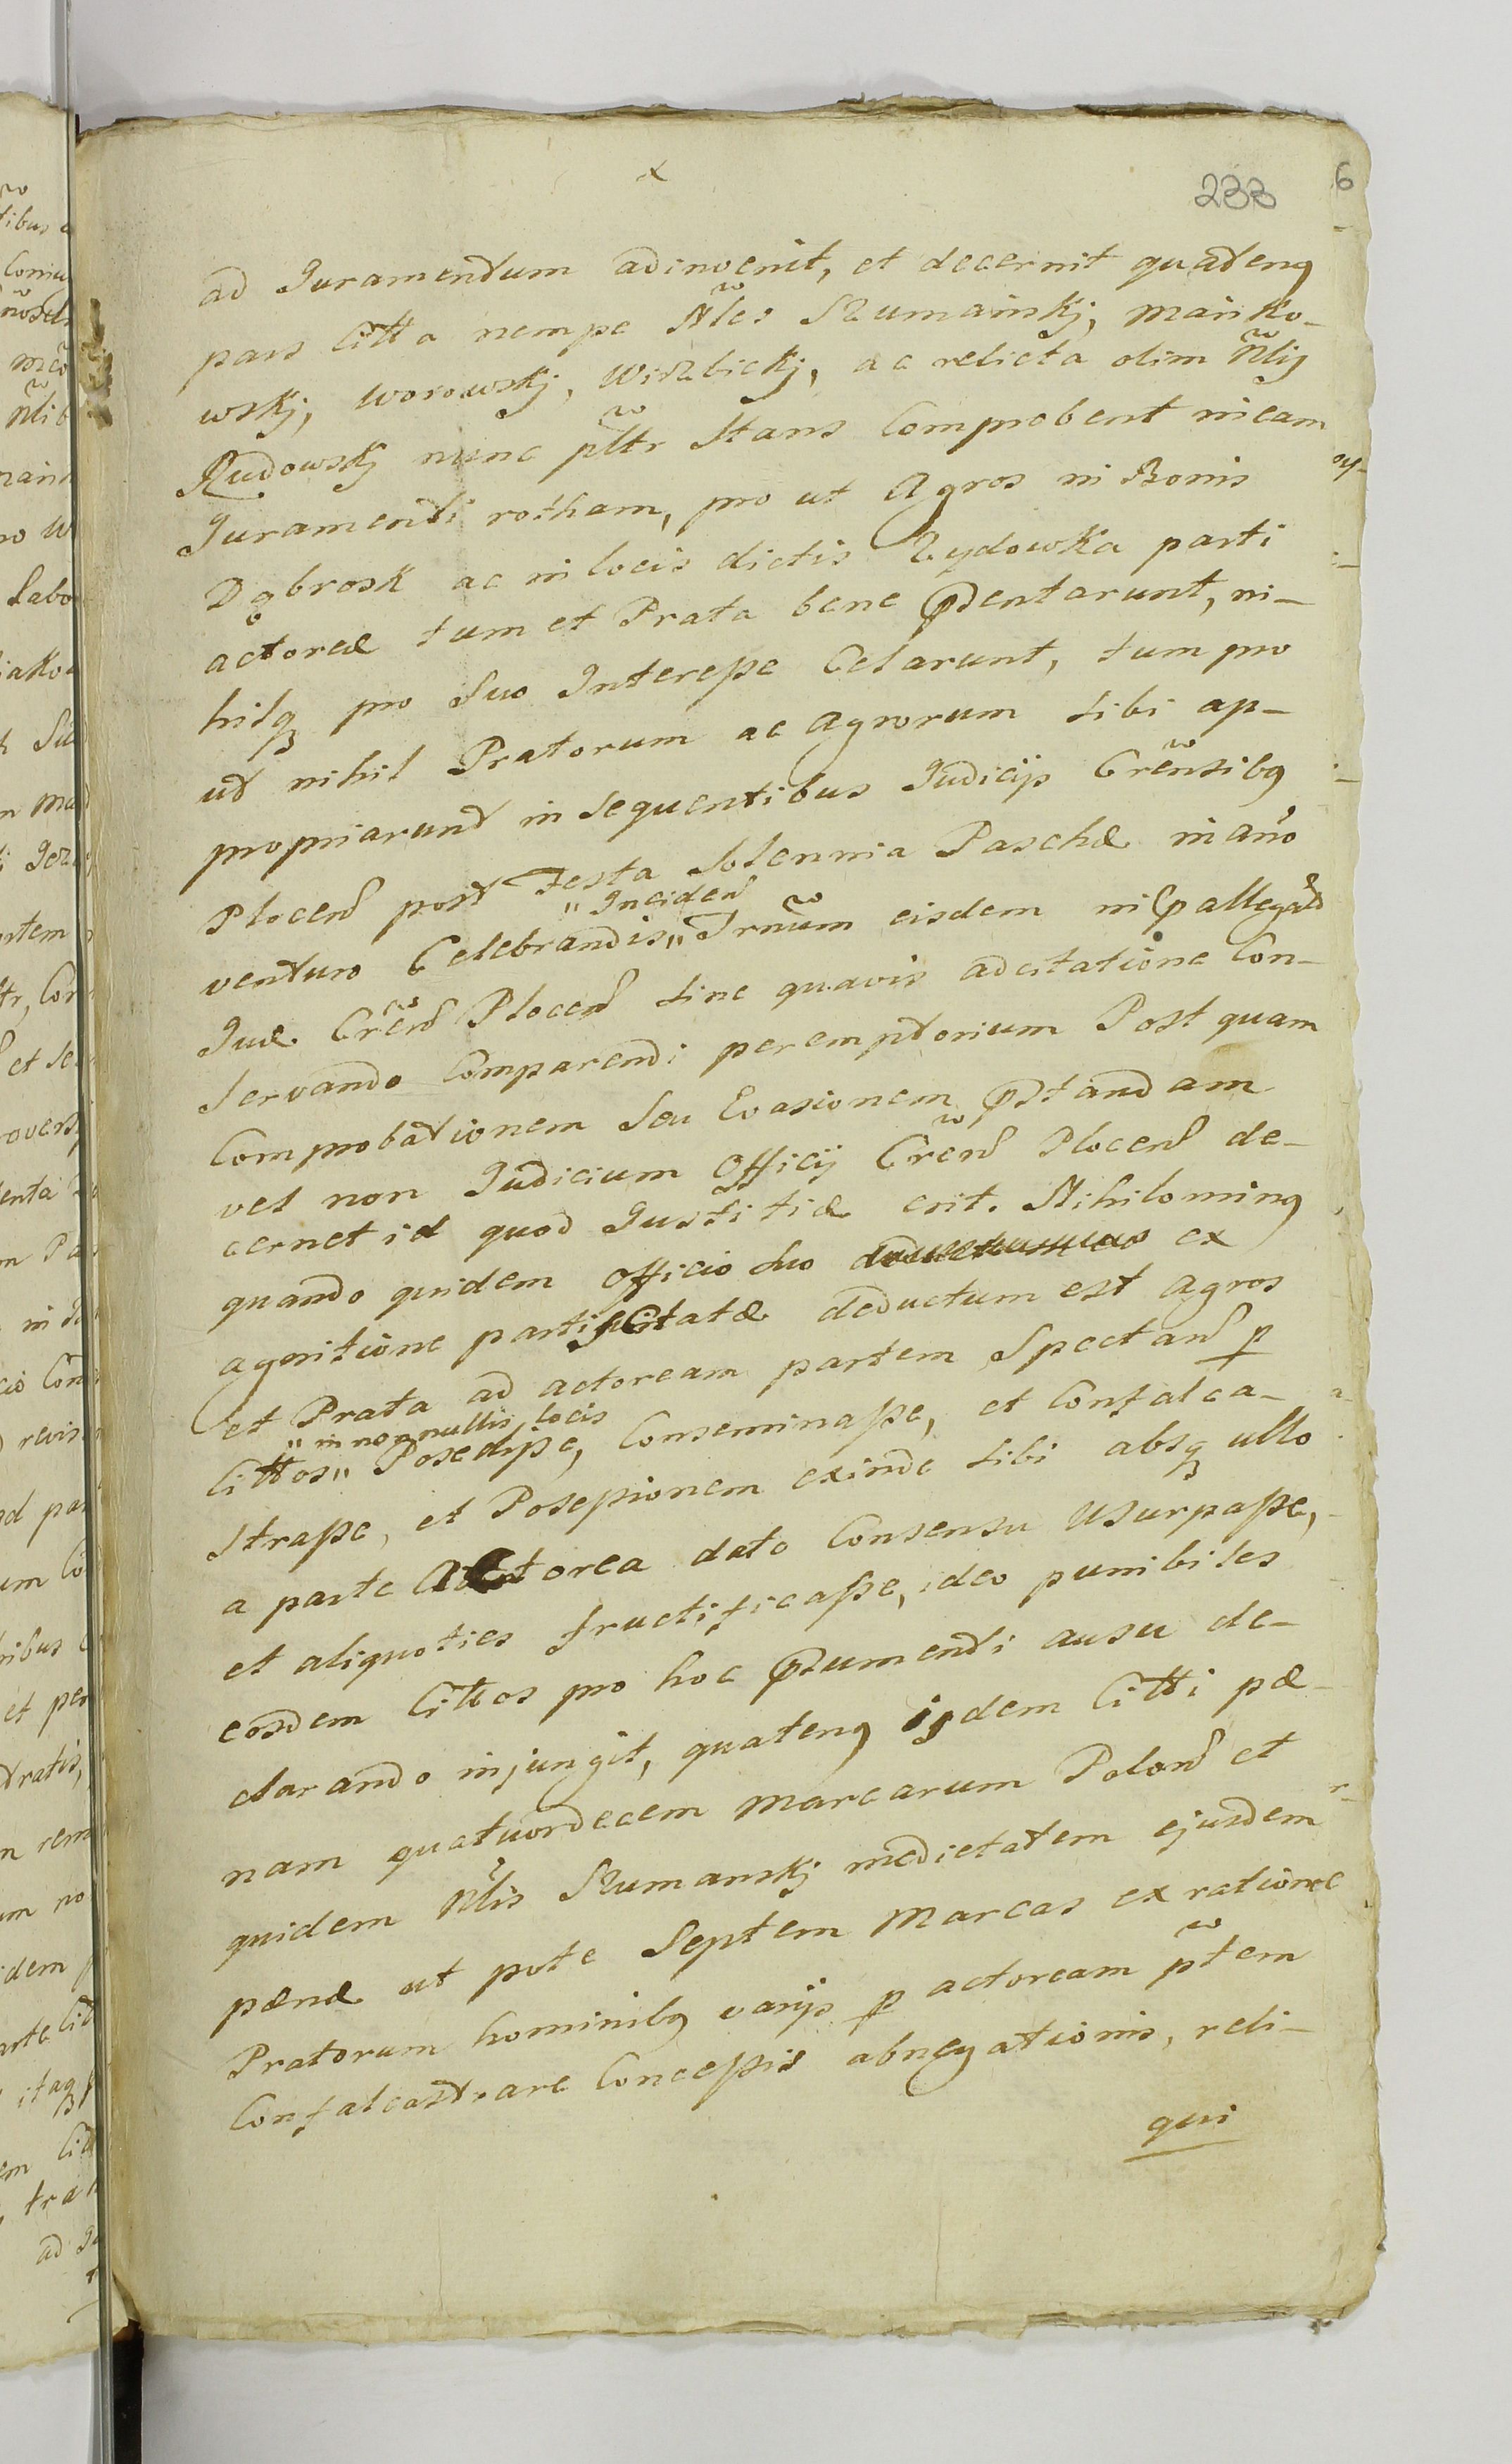 233 6
ad Juramentum adinvenit, et decernit quatenq
pars Citta nempe Nles Szumainskj, Mainko-
wskj, Worowskj, Wirzbickj, ac relicta olim Nlis
Rudowskj nunc pltr Stans Comprobent in eam
Juramenti rotham, pro ut Agros in Bonis
Dąbrosk ac in locis dictis Zydowka parti
actoreæ tum et Prata bene pdentarunt, ni-
hilq pro Suo Interesse Celarunt, tum pro
ut nihil Pratorum ac Agrorum sibi ap-
propriarunt in Sequentibus Judicijs Crensibq
Plocen post Festa Solennia Paschæ in año
venturo Celebrandis „ Inciden „ Trnum eisdem in pallegat
Juæ Cren Plocen sine quavis adcitatione Con-
servando Comparendi peremptorium Post quam
Comprobationem Seu Evasionem pstandam
vel non Judicium Officij Cren Plocen de-
cernet id quod Justitiæ erit. Nihilominq
quando quidem Officio suo ex
agnitione parti Citatæ deductum est Agros
et Prata ad actoream partem Spectan p
Cittos „ in nonnullis locis „ Posedisse, Conseminasse, et Confalca-
strasse, et Posessionem exinde sibi absq ullo
a parte Actorea dato Consensu Usurpasse,
et aliquoties fructificasse, ideo punibiles
eosdem Cittos pro hoc psumendi ausu de-
clarando injungit, quatenq ijdem Citti pæ-
nam quatuordecem Marcarum Polon et
quidem Nlis Szumanskj medietatem ejusdem
pænæ ut pote Septem Marcas ex ratione
Pratorum hominibq varijs p actoream ptem
Confalcastrare Concessis abnegationis, reli-
qui